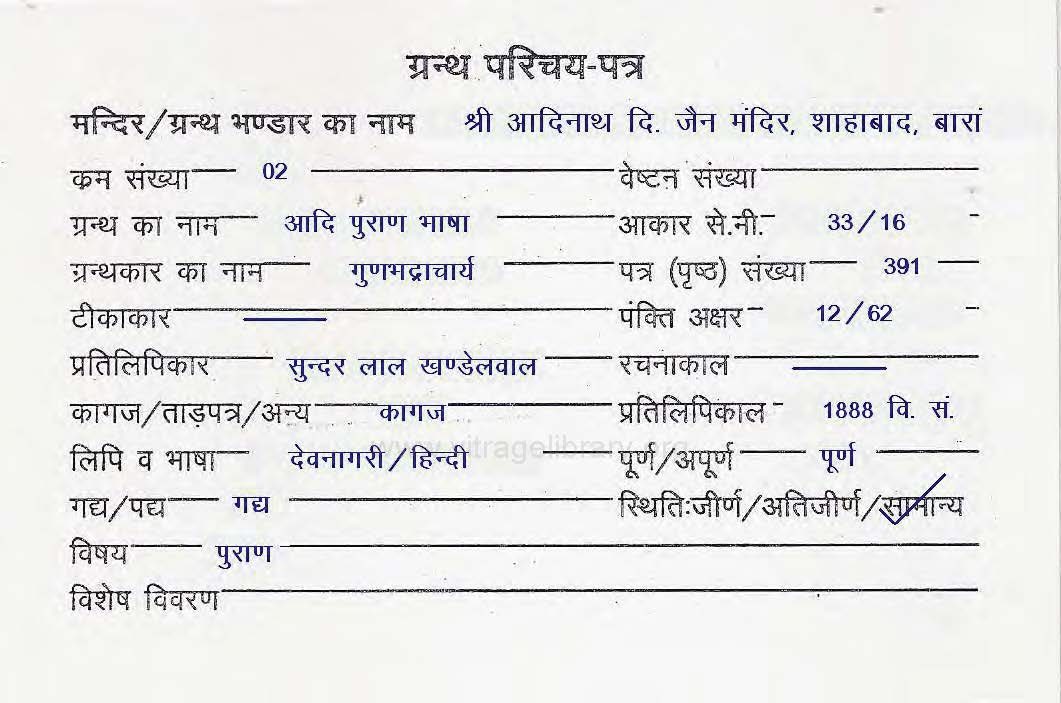 ग्रन्थ परिचय-पत्र
मन्दिर/ग्रन्थ भण्डार का नाम श्री आदिनाथ दि. जैन मंदिर, शाहाबाद, बारां
कम संख्या 02 वेष्टन संख्या
ग्रन्थ का नाम आदि पुराण भाषा आकार से.मी. 33/16
ग्रन्थकार का नाम गुणभद्राचार्य पत्र (पृष्ठ) संख्या 391
टीकाकार पंक्ति अक्षर 12/62
प्रतिलिपिकार सुन्दर लाल खण्डेलवाल रचनाकाल
कागज/ताड़पत्र/अन्य कागज प्रतिलिपिकाल 1888 वि. सं.
www.vitragelibrary.org
लिपि व भाषा देवनागरी/हिन्दी पूर्ण/अपूर्ण पूर्ण
गद्य/पद्य गद्य स्थितिःजीर्ण/अतिजीर्ण/सामान्य
विषय पुराण
विशेष विवरण